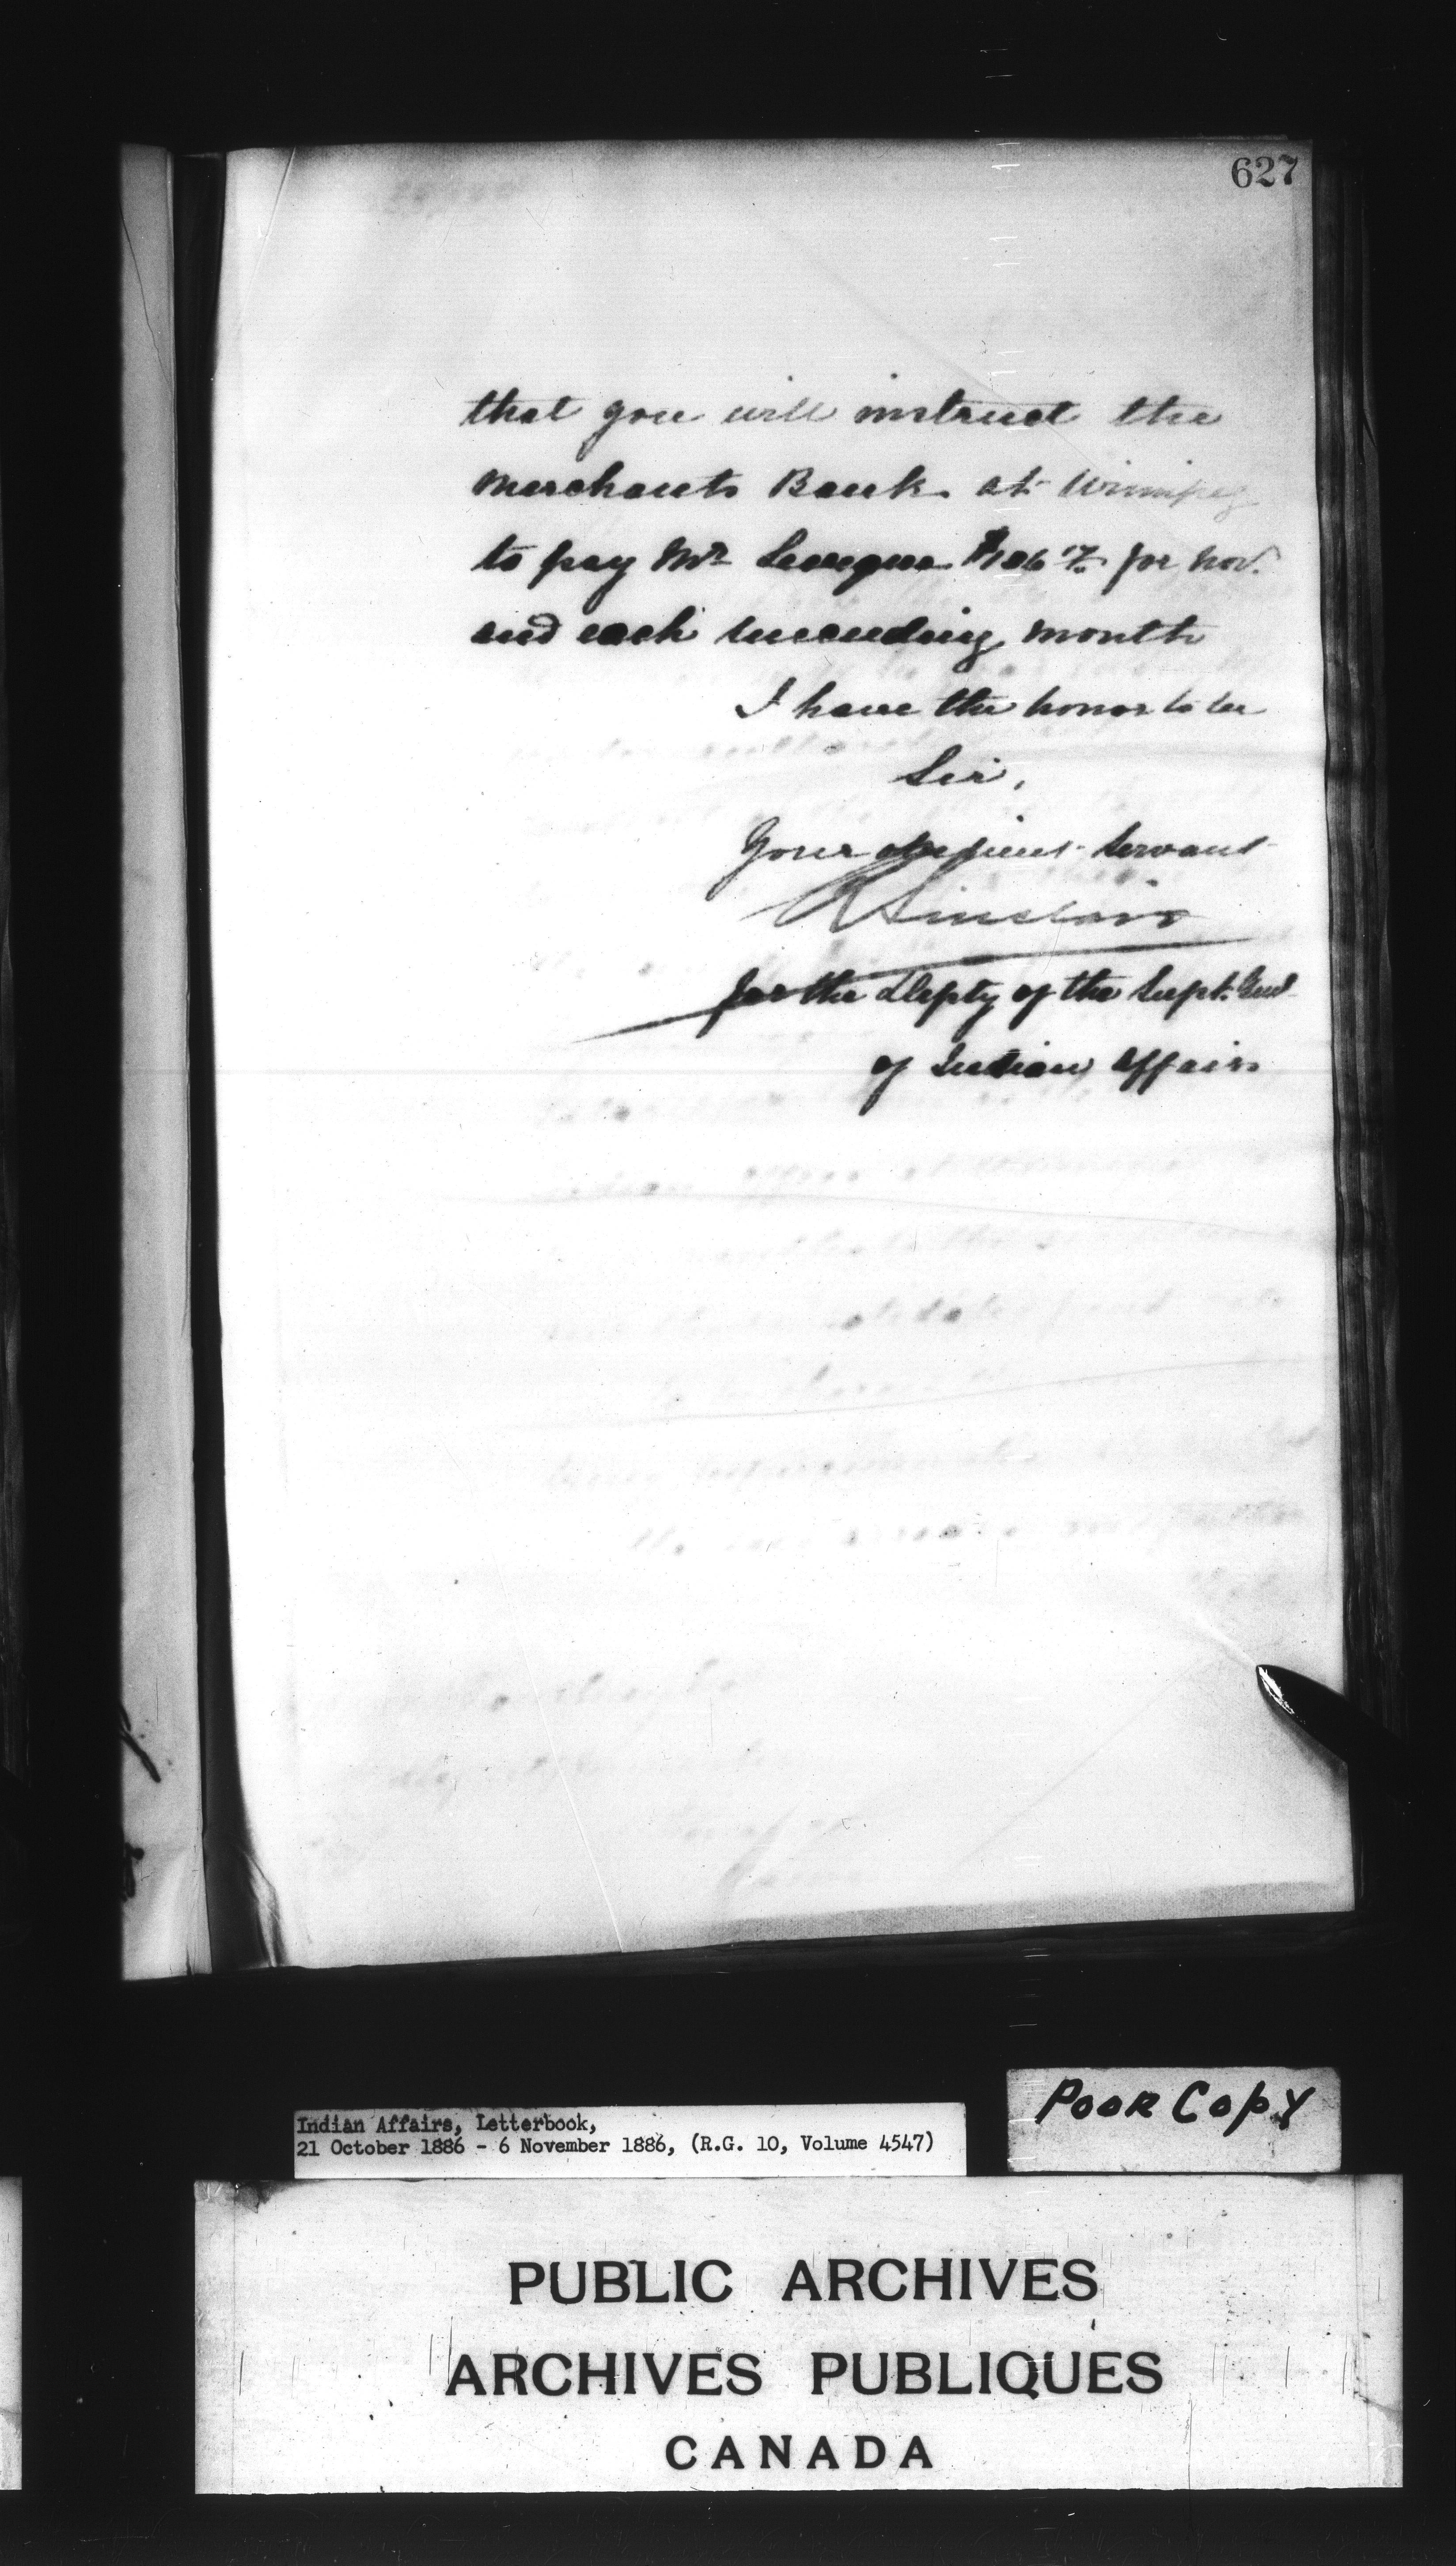 627
that you will instruct the
Merchants Bank at Winnipeg
to pay Mr Leveque $106 17 for Nov.
and each succeeding month
I have the honor to be
Sir,
Your obedient Servant
R Sinclair
for the Depty of the Supt. Genl
of Indian Affairs
Poor Copy
Indian Affairs, Letterbook,
21 October 1886 - 6 November 1886, (R.G. 10, Volume 4547)
PUBLIC ARCHIVES
ARCHIVES PUBLIQUES
CANADA